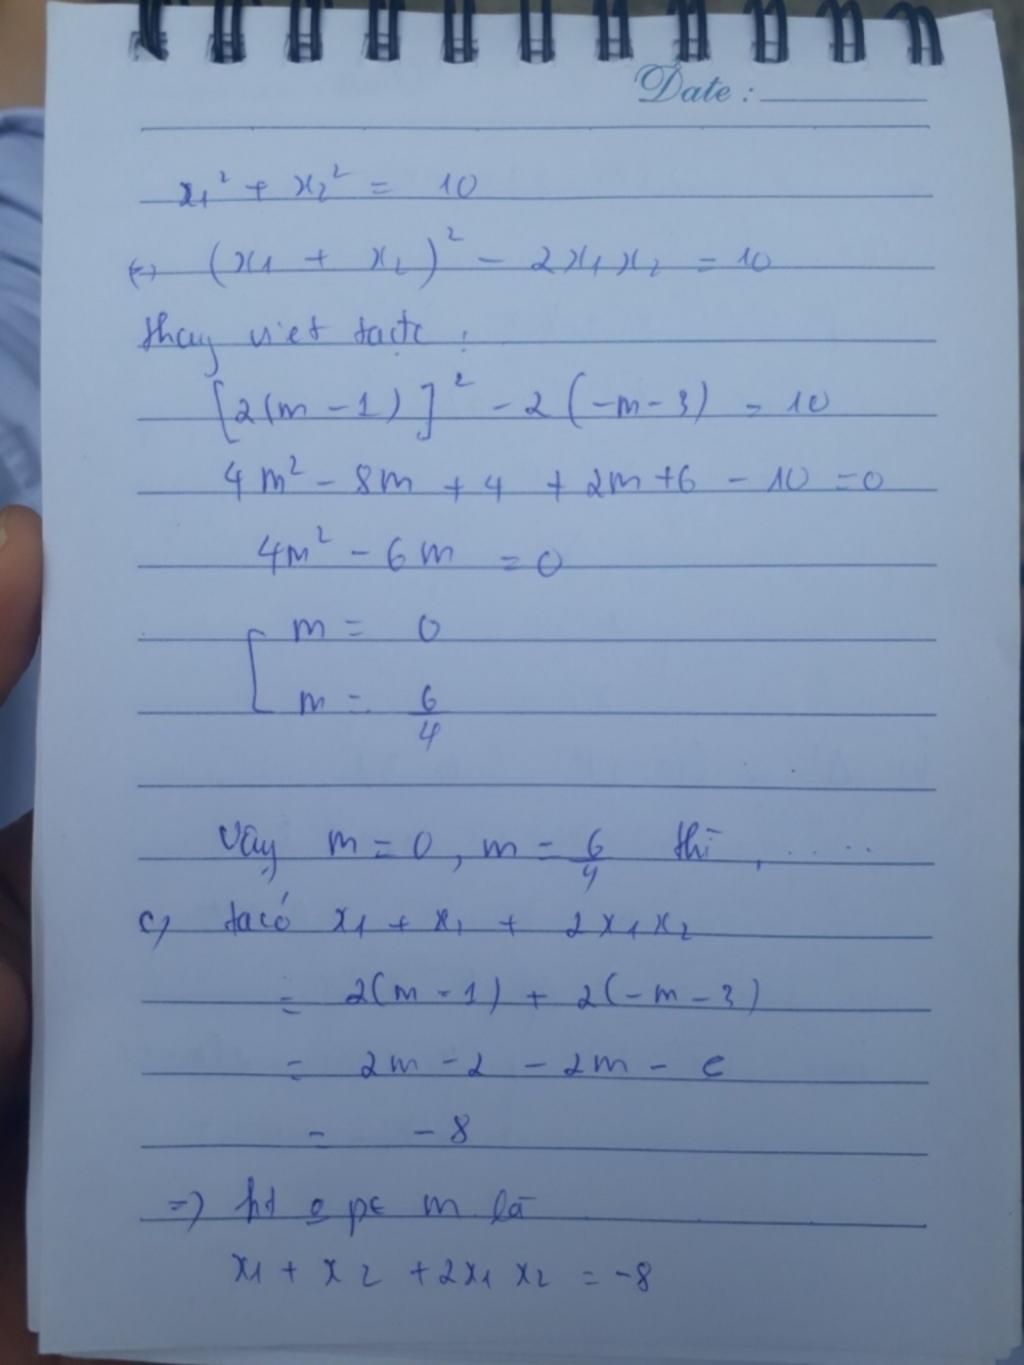 Date :
x₁² + x₂² = 10
(=) (x₁ + x₂)² - 2x₁x₂ = 10
thay viet
[2(m - 1)]² - 2(-m - 3) = 10
4m² - 8m + 4 + 2m + 6 - 10 = 0
4m² - 6m = 0
[ m = 0
m = 6/4
Vậy m = 0, m = 6/4 thì, .....
c) ta có x₁ + x₁ + 2x₁x₂
= 2(m - 1) + 2(-m - 3)
= 2m - 2 - 2m - 6
= - 8
=) ht o pt m là
x₁ + x₂ + 2x₁x₂ = -8